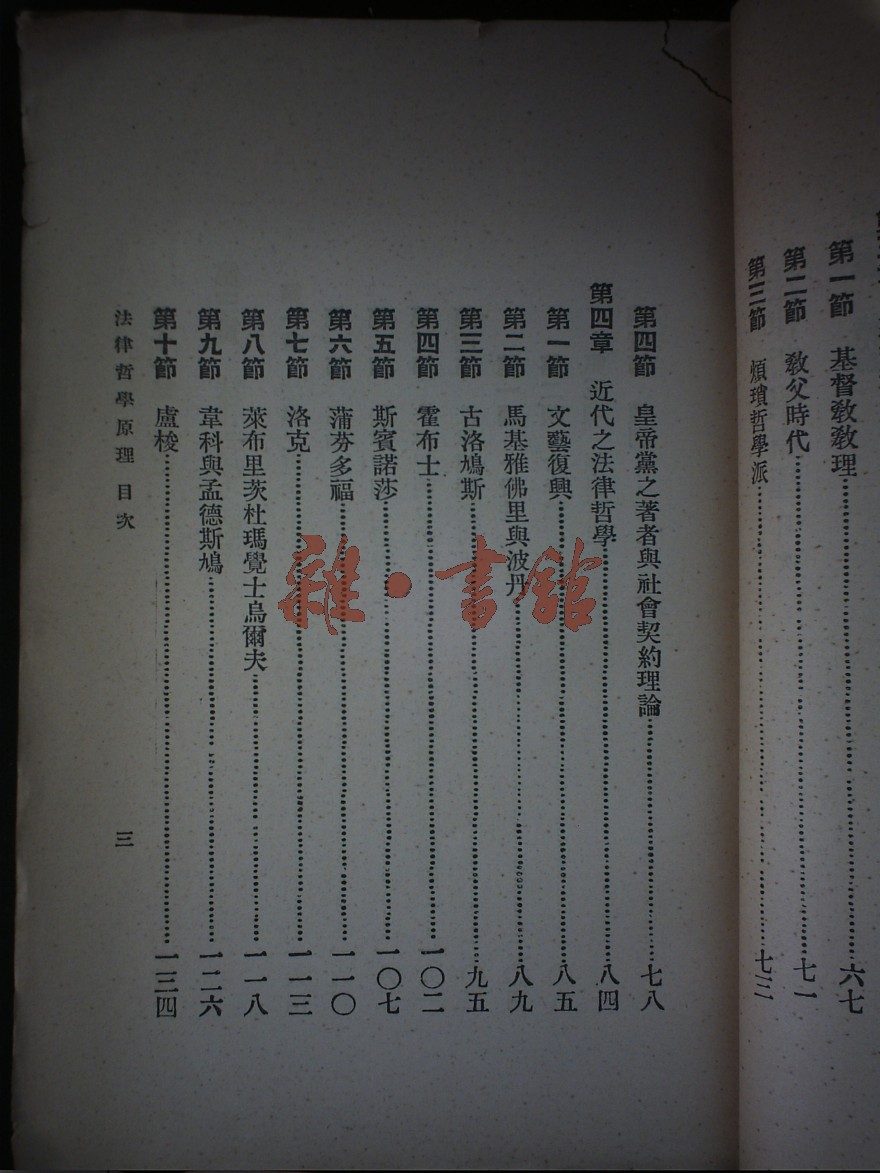 第一節 基督敎敎理………六七
第二節 敎父時代………七一
第三節 煩瑣哲學派………七三
第四節 皇帝黨之著者與社會契約理論………七八
第四章 近代之法律哲學………八四
第一節 文藝復興………八五
第二節 馬基雅佛里與波丹………八九
第三節 古洛鳩斯………九五
第四節 霍布士………一〇二
第五節 斯賓諾莎………一〇七
第六節 蒲芬多福………一一〇
第七節 洛克………一一三
第八節 萊布里茨杜瑪覺士烏爾夫………一一八
第九節 韋科與孟德斯鳩………一二六
第十節 盧梭………一三四
法律哲學原理 目次 三
雜·書館